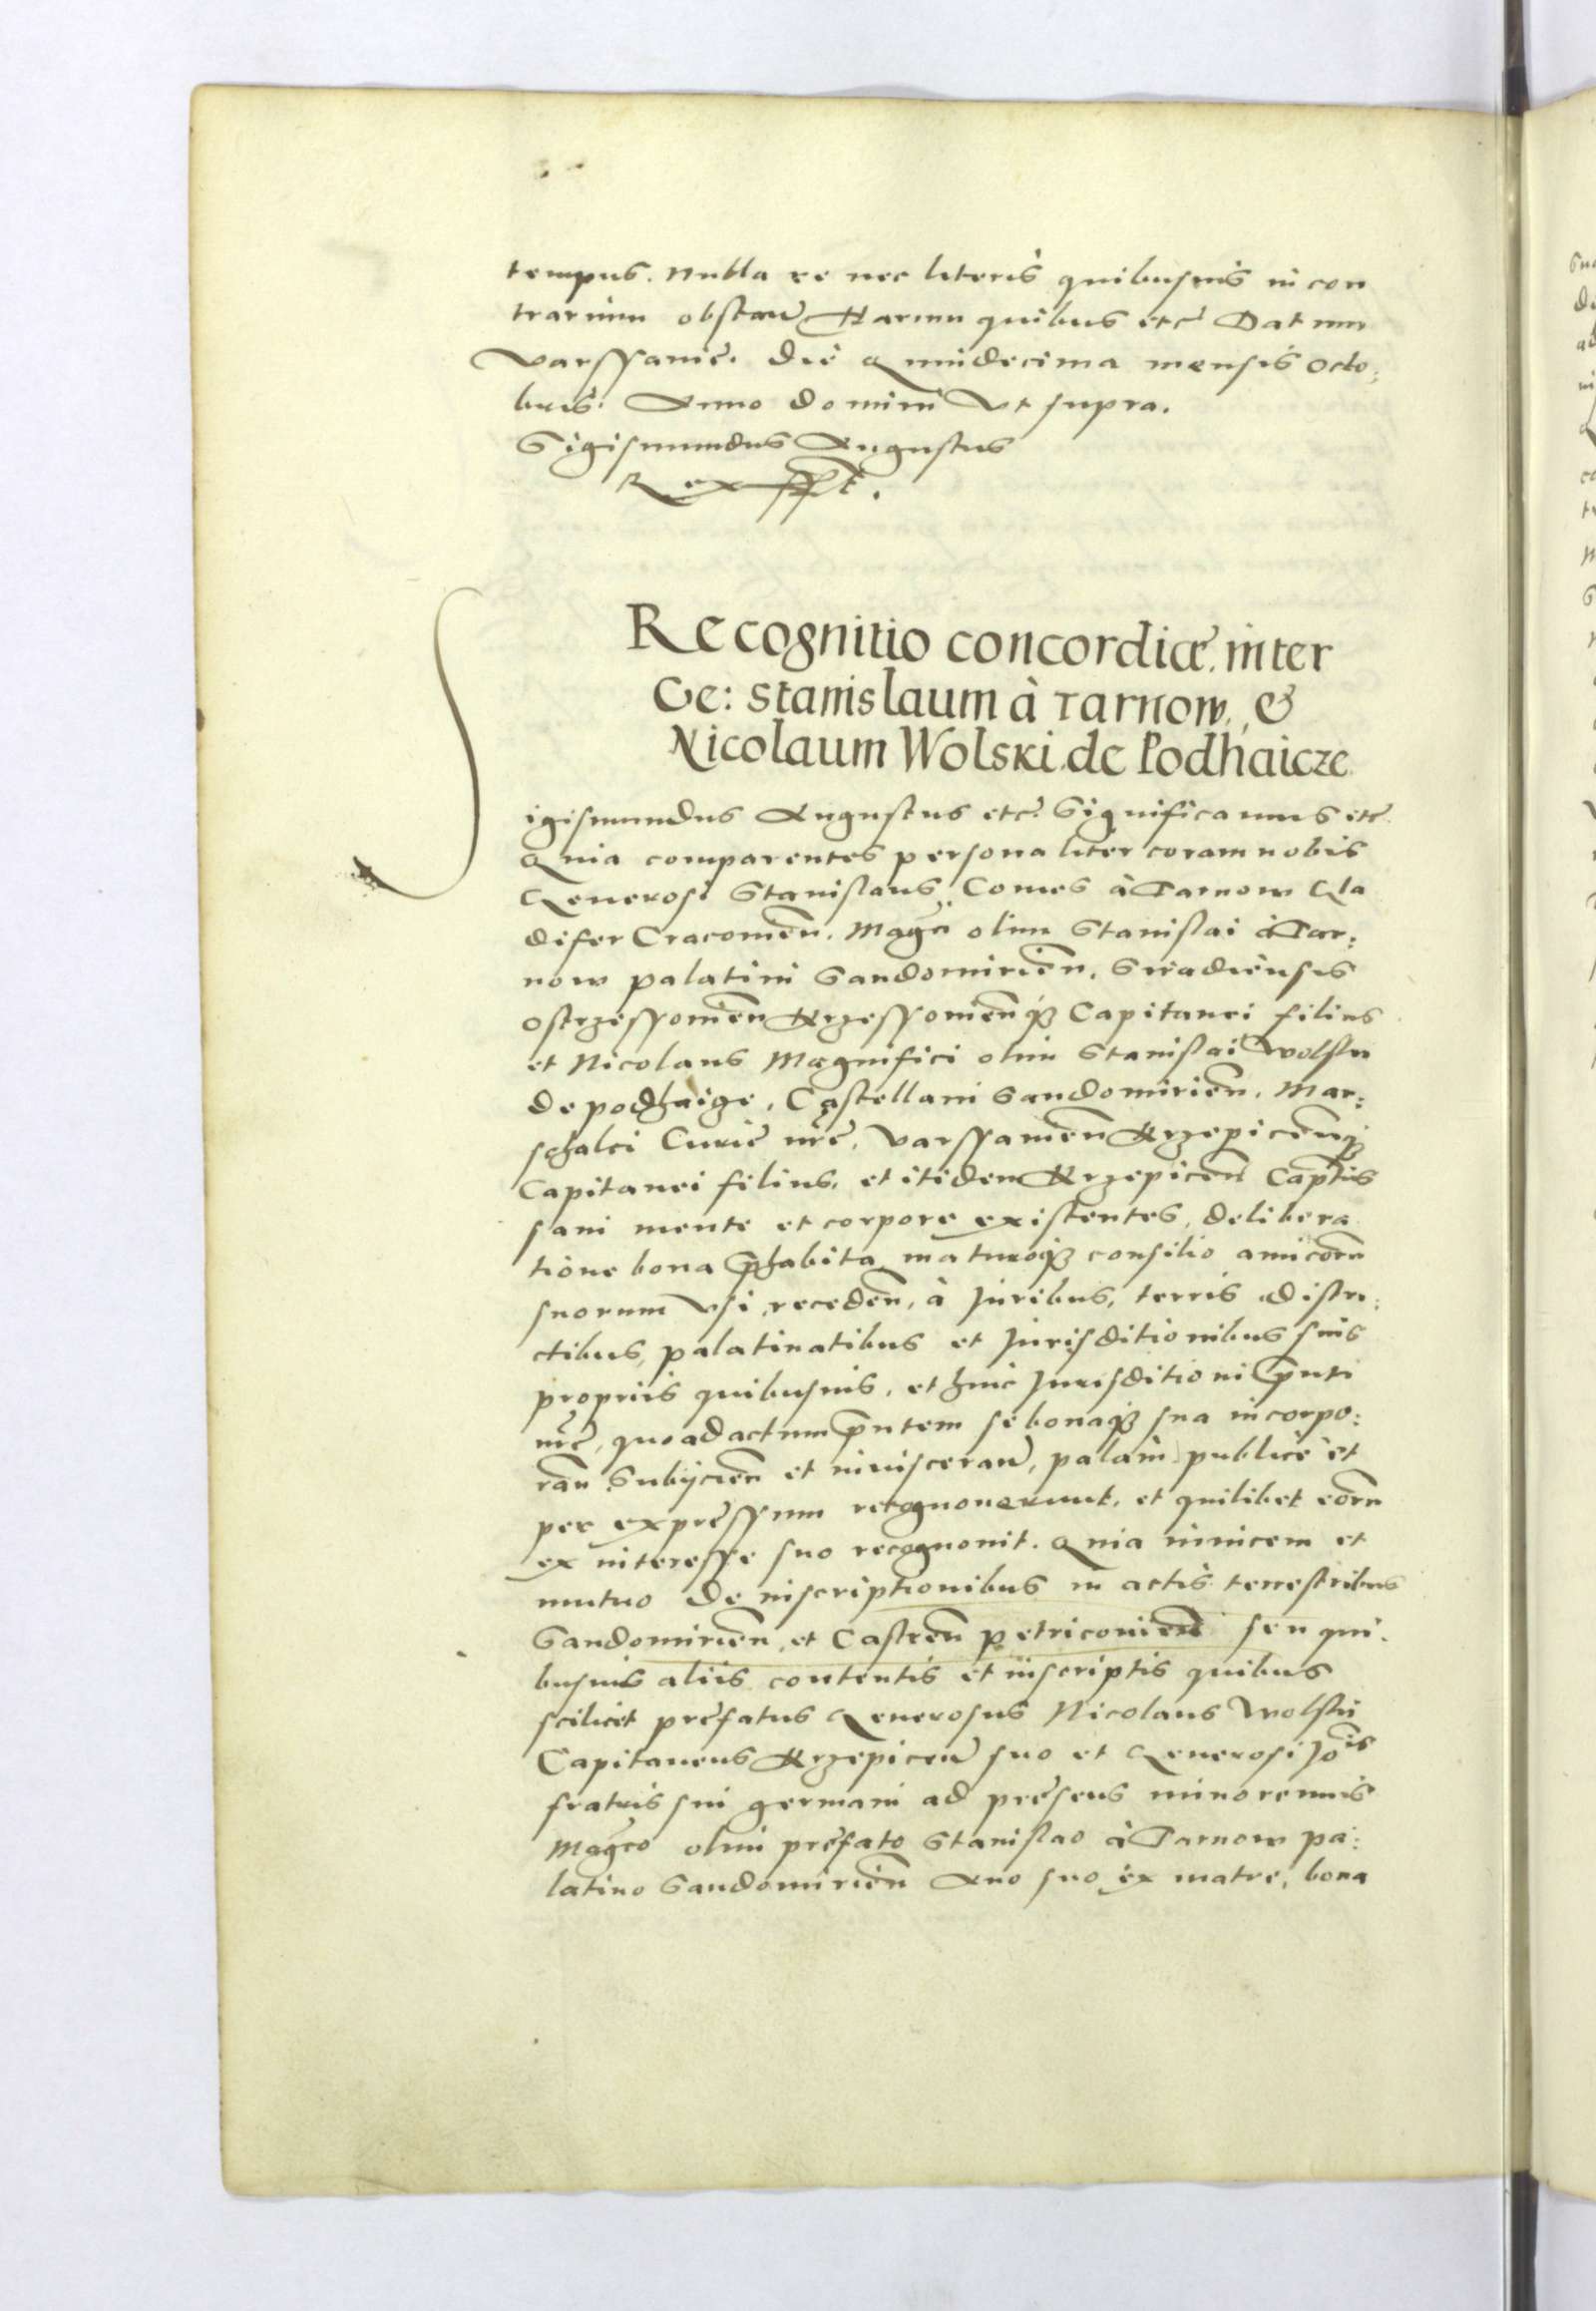 tempus. Nulla re nec literis quibusuis in con
trarium obstan̄ Harum quibus etc̄ Datum
Varssauie. die Quindecima mensis Octo:
bris. Anno domini Vt supra.
Sigismundus Augustus
Rex sst.
Recognitio concordiæ, inter
Ge: Stanislaum à Tarnow, &
Nicolaum Wolski de Podhaicze
Sigismundus Augustus etc̄. Significamus etc̄
Quia comparentes personaliter coram nobis
Generosi Stanislaus Comes à Tarnow Gla
difer Cracouien̄. Magci olim Stanislai à Tar:
now palatini Sandomirien̄. Siradiensis
Ostrzessouien̄ Krzessouien̄q₃ Capitanei filius
et Nicolaus Magnifici olim Stanislai Wolski
de podhaicze, Castellani Sandomirien̄. Mar:
schalci Curie nr̄e, Varssauien̄ Krzepicen̄q₃
Capitanei filius, et itidem Krzepicen̄ Captus
sani mente et corpore existentes, delibera
tione bona p̄habita maturoq₃ consilio amicorū
suorum Vsi, receden̄, à Juribus, terris distri:
ctibus, palatinatibus et Jurisditionibus suis
propriis quibusuis, et huic Jurisditioni p̄nti
nr̄e, quo ad actum p̄ntem se bonaq₃ sua incorpo:
ran̄ Subijcien̄ et inuisceran̄, palàm publicè et
per expressum recognouerunt, et quilibet eorū
ex interesse suo recognouit. Quia inuicem et
mutuo de inscriptionibus in actis terrestribus
Sandomirien̄, et Castren̄ petricouien̄ seu qui
busuis aliis contentis et inscriptis quibus
scilicet prefatus Generosus Nicolaus Wolski
Capitaneus Krzepicen̄ suo et Generosi Jois
fratris sui germani ad presens minorennis
Magco olim prefato Stanislao à Tarnow pa:
latino Sandomirien̄ Auo suo ex matre, bona